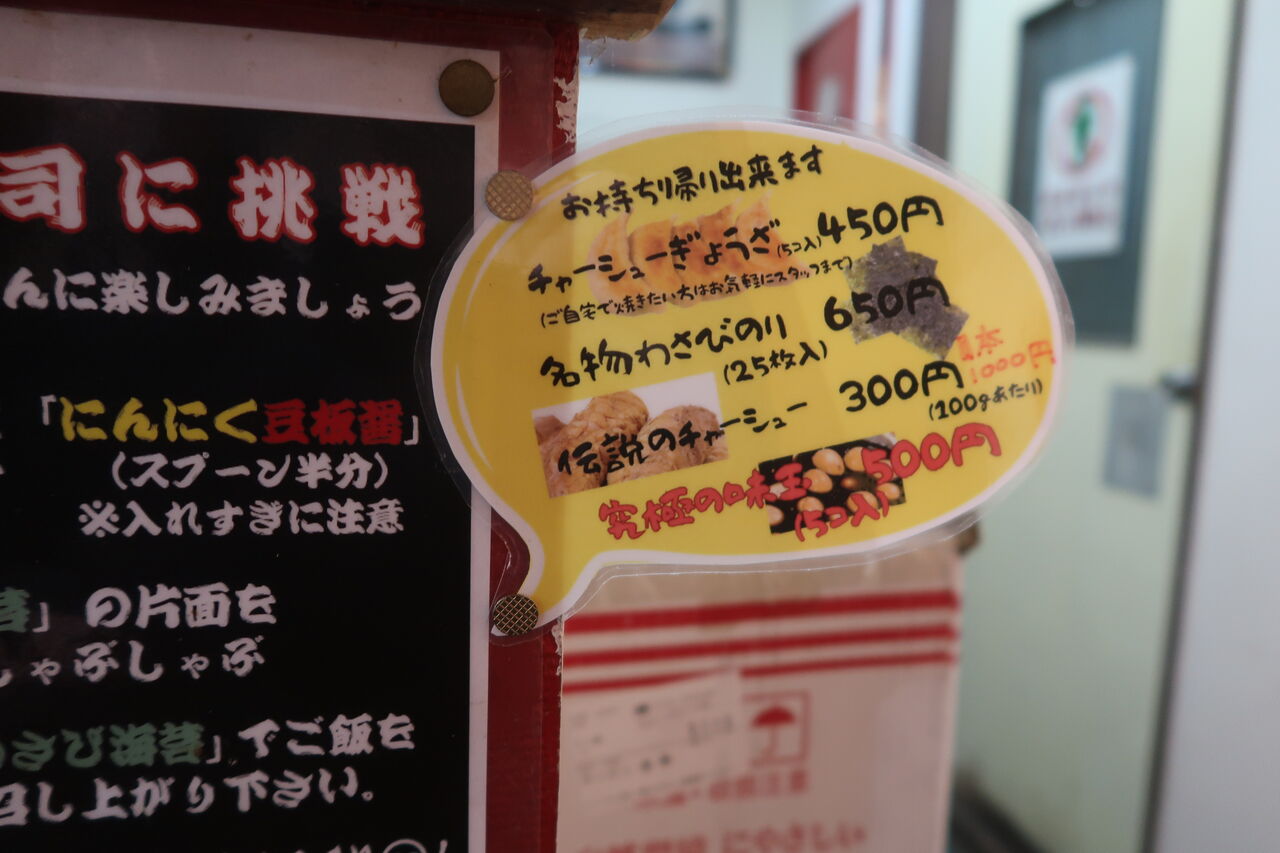 司に挑戦
んに楽しみましょう
「にんにく豆板醤」
(スプーン半分)
※入れすぎに注意
」の片面を
しゃぶしゃぶ
さび海苔」でご飯を
召し上がり下さい。
お持ち帰り出来ます
チャーシューぎょうざ(5コ入)450円
(ご自宅で焼きたい方はお気軽にスタッフまで)
名物わさびのり 650円
(25枚入)
1本
1000円
伝説のチャーシュー 300円
(100gあたり)
究極の味玉 500円
(5コ入)
にやさしい